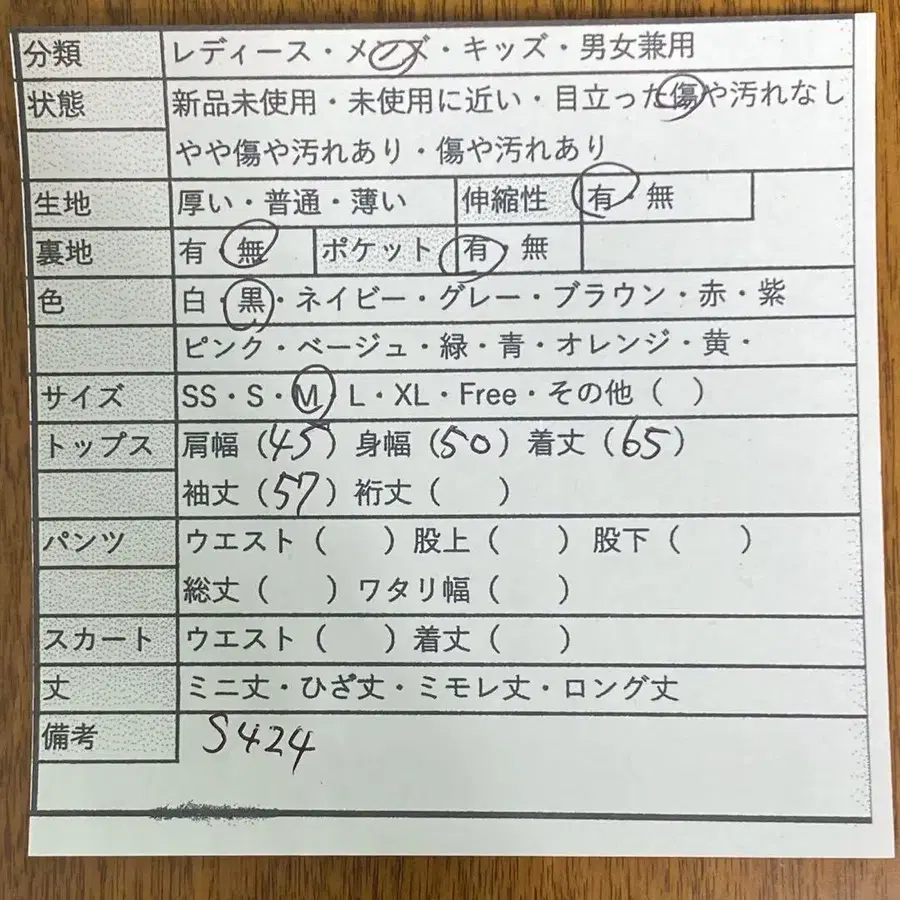 分類 レディース・メンズ・キッズ・男女兼用
状態 新品未使用・未使用に近い・目立った傷や汚れなし
やや傷や汚れあり・傷や汚れあり
生地 厚い・普通・薄い 伸縮性 有・無
裏地 有・無 ポケット 有・無
色 白・黒・ネイビー・グレー・ブラウン・赤・紫
ピンク・ベージュ・緑・青・オレンジ・黄・
サイズ SS・S・M・L・XL・Free・その他（ ）
トップス 肩幅（45）身幅（50）着丈（65）
袖丈（57）裄丈（ ）
パンツ ウエスト（ ）股上（ ）股下（ ）
総丈（ ）ワタリ幅（ ）
スカート ウエスト（ ）着丈（ ）
丈 ミニ丈・ひざ丈・ミモレ丈・ロング丈
備考 S424